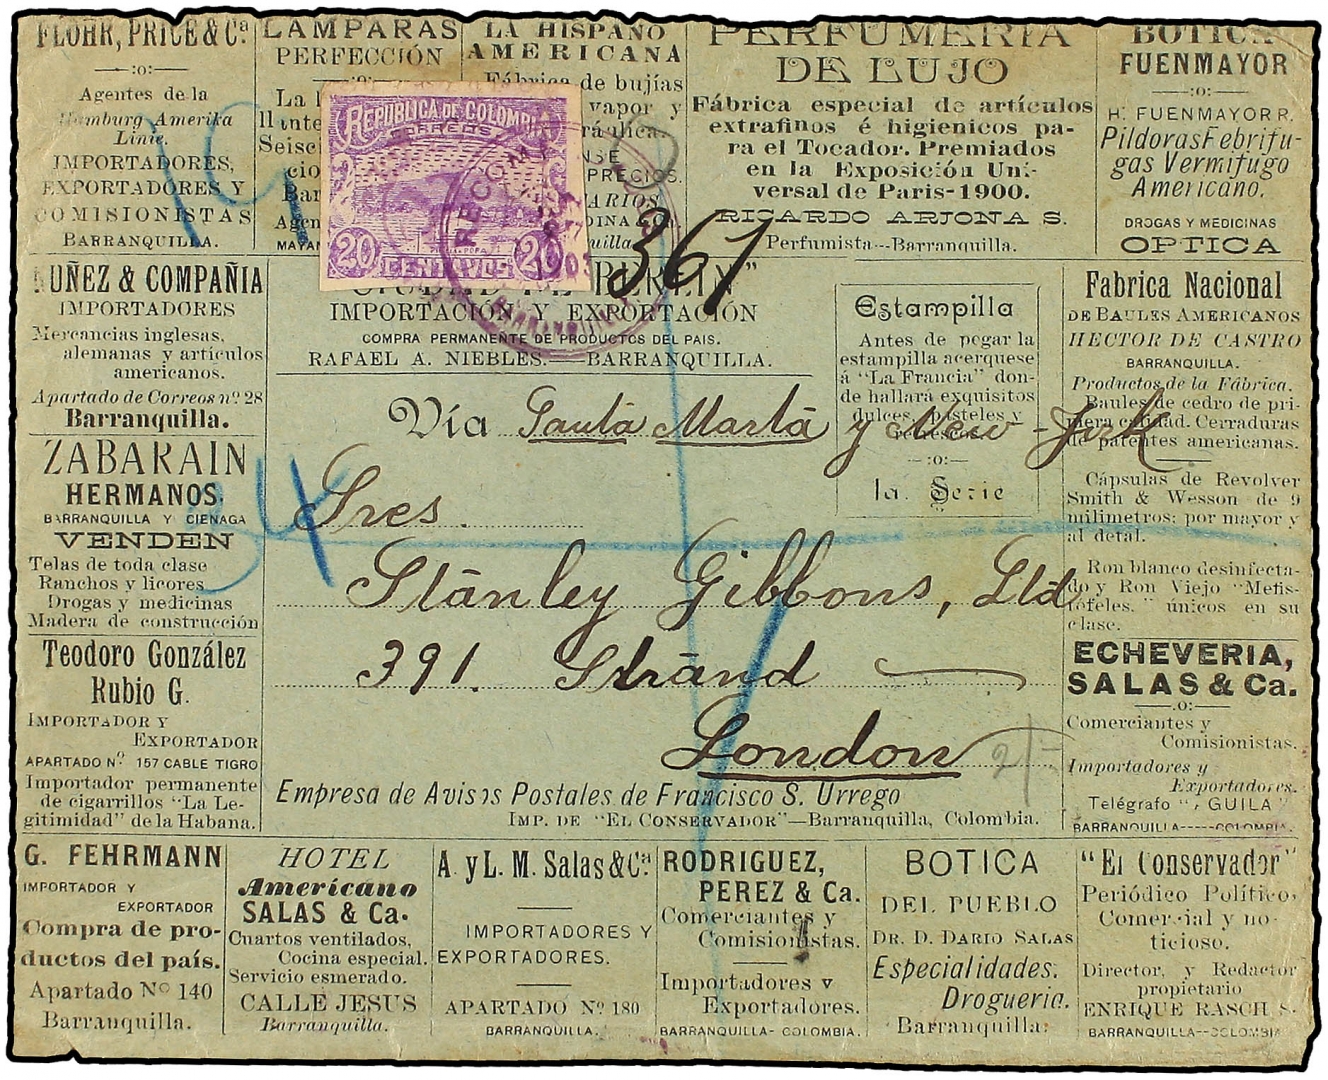 FLOHR, PRICE & Cª
—:o:—
Agentes de la
Hamburg Amerika
Linie.
IMPORTADORES,
EXPORTADORES Y
COMISIONISTAS
BARRANQUILLA.
LAMPARAS
PERFECCIÓN
La
Agen
LA HISPANO
AMERICANA
Fábrica de bujías
vapor y
PRECIOS.
PERFUMERIA
DE LUJO
Fábrica especial de artículos
extrafinos é higienicos pa-
ra el Tocador. Premiados
en la Exposición Uni-
versal de Paris-1900.
RICARDO ARJONA S.
Perfumista--Barranquilla.
BOTICA
FUENMAYOR
—:o:—
H. FUENMAYOR R.
Pildoras Febrifu-
gas Vermifugo
Americano.
DROGAS Y MEDICINAS
OPTICA
REPUBLICA DE COLOMBIA
CORREOS
20 CENTAVOS 20
RECOM
1903
19
367
NUÑEZ & COMPAÑIA
IMPORTADORES
Mercancias inglesas,
alemanas y artículos
americanos.
Apartado de Correos nº 28
Barranquilla.
IMPORTACIÓN Y EXPORTACIÓN
COMPRA PERMANENTE DE PRODUCTOS DEL PAIS.
RAFAEL A. NIEBLES.—BARRANQUILLA.
Estampilla
Antes de pegar la
estampilla acerquese
á "La Francia" don-
de hallará exquisitos
dulces, pasteles y
—:o:—
1a. Serie
Fabrica Nacional
DE BAULES AMERICANOS
HECTOR DE CASTRO
BARRANQUILLA.
Productos de la Fábrica.
Baules de cedro de pri-
mera calidad. Cerraduras
de patentes americanas.
Cápsulas de Revolver
Smith & Wesson de 9
milimetros; por mayor y
al detal.
Ron blanco desinfecta-
do y Ron Viejo "Mefis-
tófeles." únicos en su
clase.
Vía Santa Marta y New-York
ZABARAIN
HERMANOS.
BARRANQUILLA Y CIENAGA
VENDEN
Telas de toda clase
Ranchos y licores
Drogas y medicinas
Madera de construcción
34
Sres.
Stanley Gibbons, Ltd
391. Strand
London
2/-
Teodoro González
Rubio G.
IMPORTADOR Y
EXPORTADOR
APARTADO Nº 157 CABLE TIGRO
Importador permanente
de cigarrillos "La Le-
gitimidad" de la Habana.
ECHEVERIA,
SALAS & Ca.
—.o:—
Comerciantes y
Comisionistas.
Importadores y
Exportadores.
Telégrafo "AGUILA"
BARRANQUILLA-----COLOMBIA.
Empresa de Avisos Postales de Francisco S. Urrego
IMP. DE "EL CONSERVADOR"—Barranquilla, Colombia.
G. FEHRMANN
IMPORTADOR Y
EXPORTADOR
Compra de pro-
ductos del país.
Apartado Nº 140
Barranquilla.
HOTEL
Americano
SALAS & Ca.
Cuartos ventilados,
Cocina especial.
Servicio esmerado.
CALLE JESUS
Barranquilla.
A. y L. M. Salas & Cª
IMPORTADORES Y
EXPORTADORES.
APARTADO Nº 180
BARRANQUILLA.
RODRIGUEZ,
PEREZ & Ca.
Comerciantes y
Comisionistas.
Importadores y
Exportadores.
BARRANQUILLA- COLOMBIA.
BOTICA
DEL PUEBLO
DR. D. DARIO SALAS
Especialidades:
Drogueria.
Barranquilla:
"El Conservador"
Periódico Político,
Comercial y no-
ticioso.
Director, y Redactor
propietario
ENRIQUE RASCH S.
BARRANQUILLA--COLOMBIA